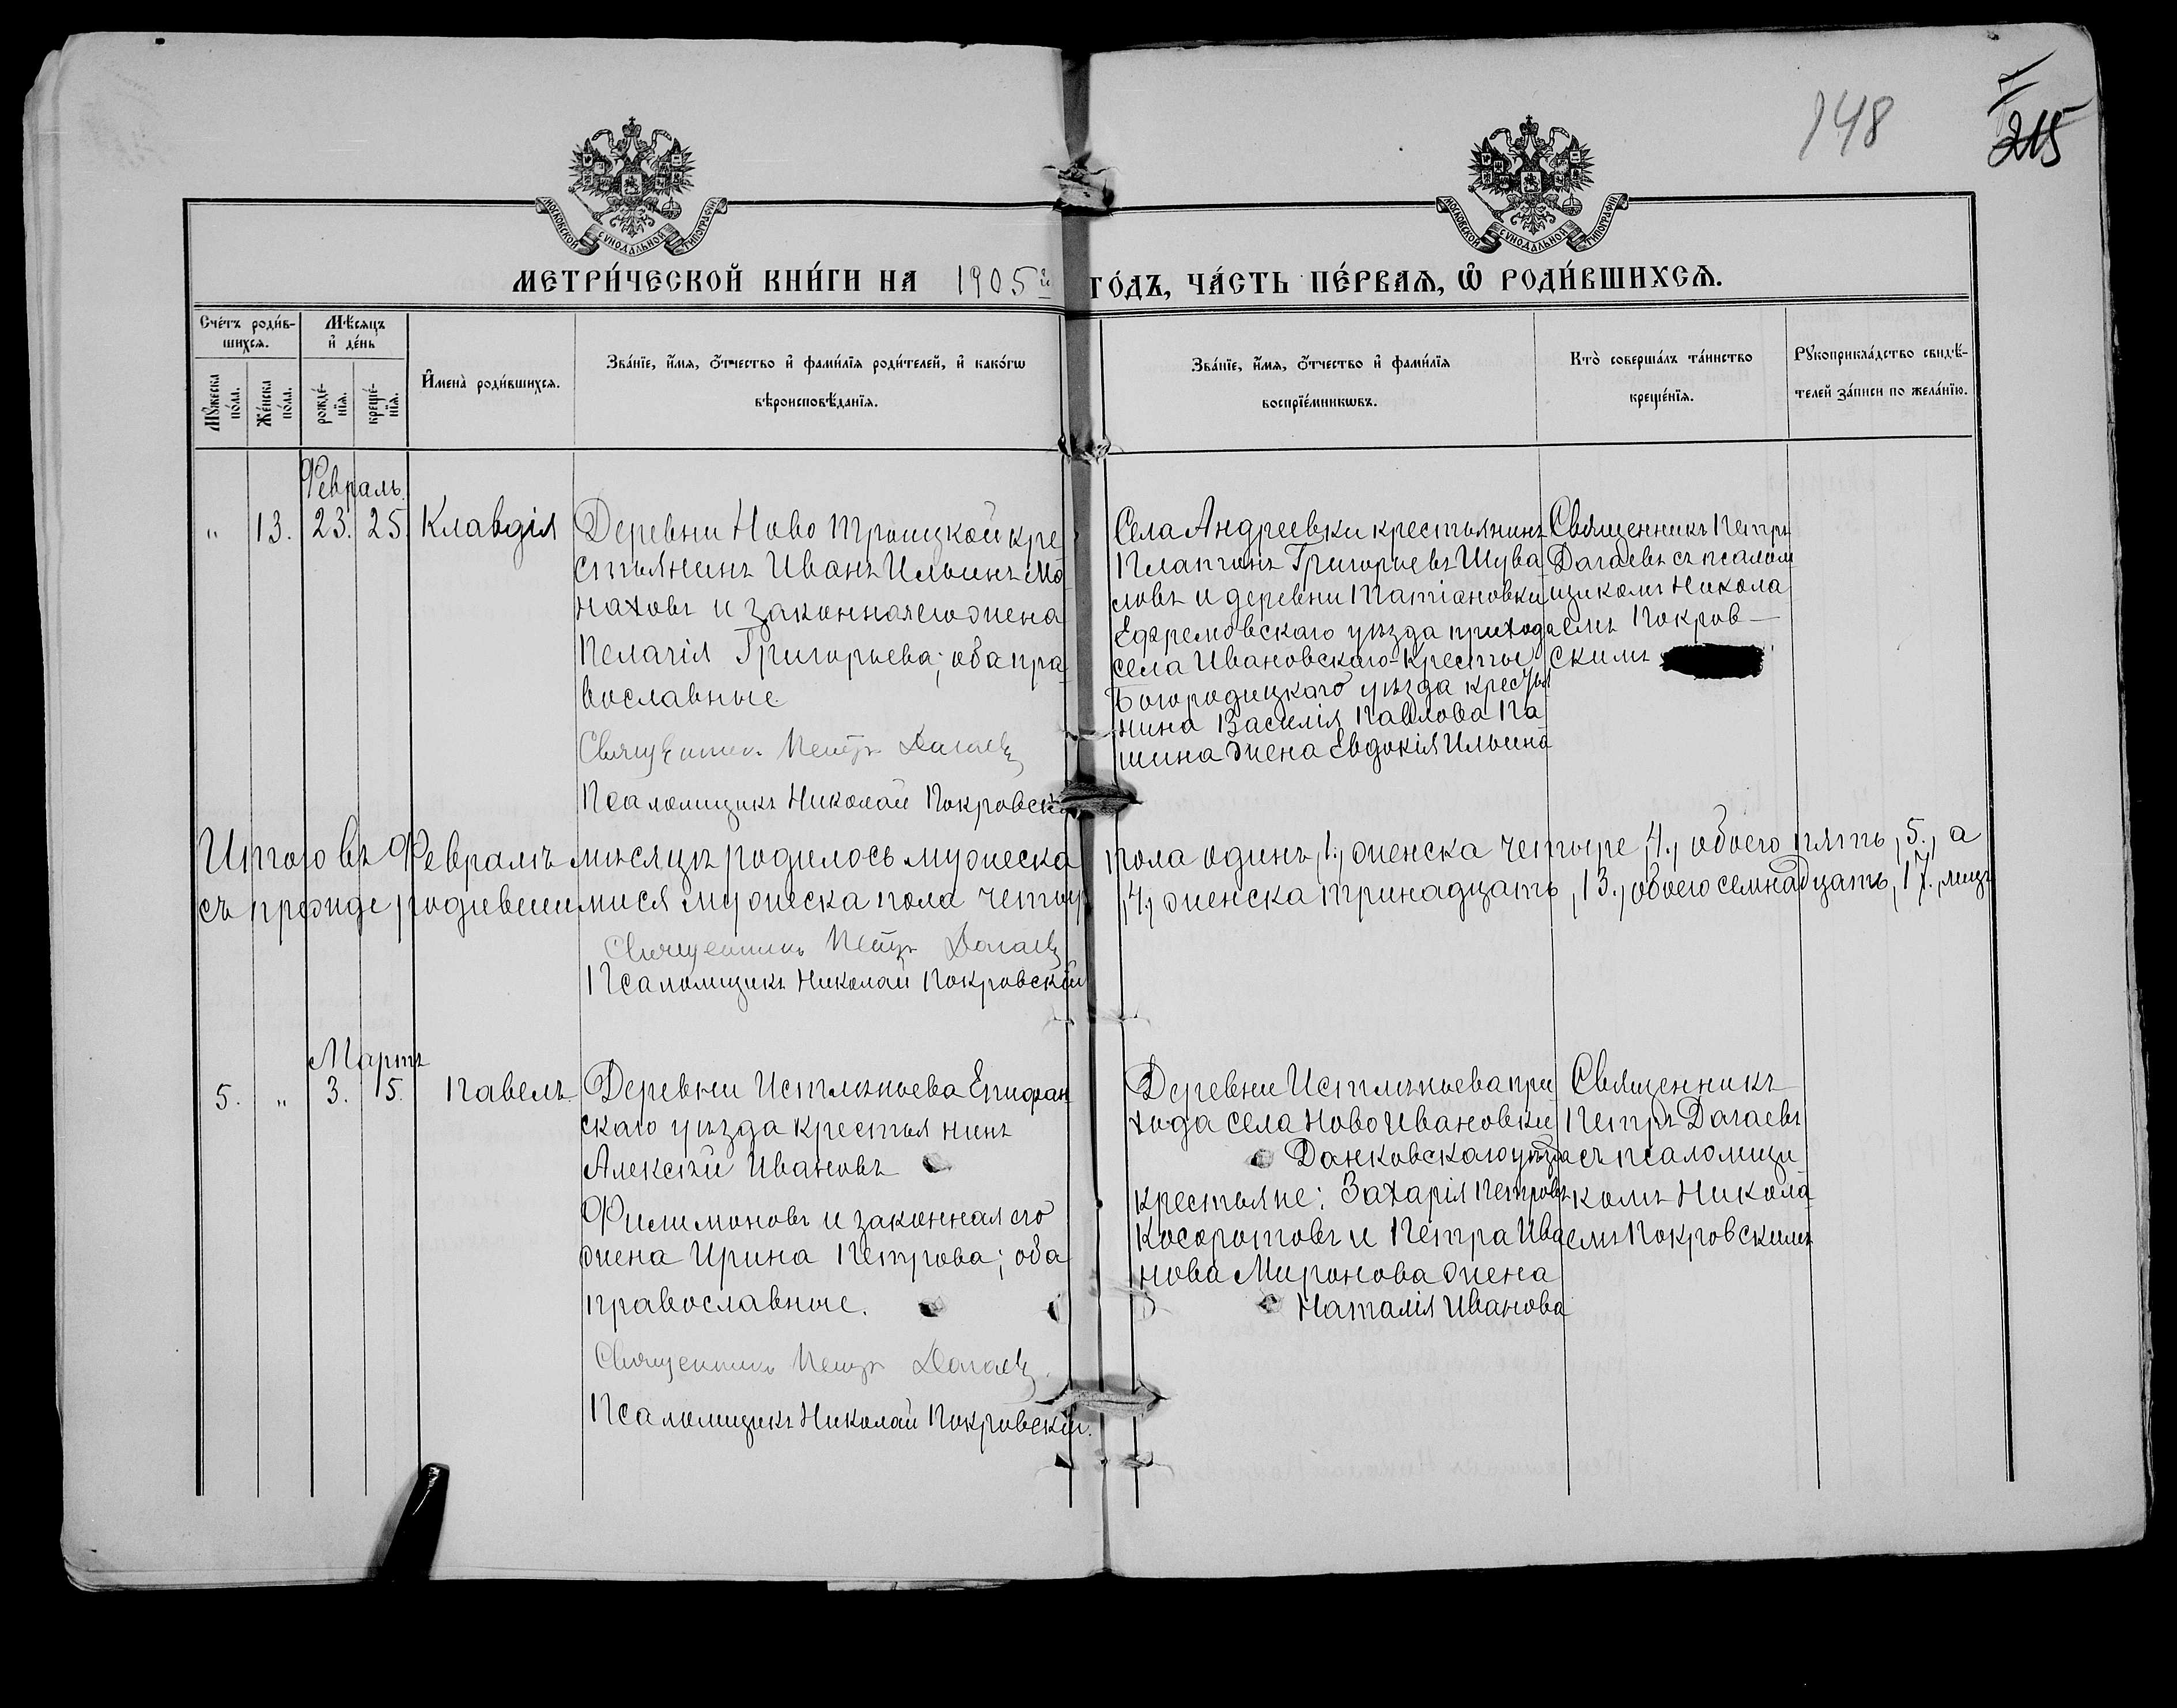 148
215
МОСКОВСКОЙ СѴНОДАЛЬНОЙ ТИПОГРАФІИ
МОСКОВСКОЙ СѴНОДАЛЬНОЙ ТИПОГРАФІИ
МЕТРИ́ЧЕСКОЙ КНИ́ГИ НА 1905й ГО́ДЪ, ЧА́СТЬ ПЕ́РВАѦ, Ѡ҆ РОДИ́ВШИХСѦ.
Сче́тъ роди́в-
шихсѧ.
Мꙋжеска по́ла.
Же́нска по́ла.
Мѣ́сѧцъ
и҆ де́нь
рожде́-
нїѧ.
креще́-
нїѧ.
И҆мена̀ роди́вшихсѧ.
Зва́нїе, и҆́мѧ, ѻ҆́тчество и҆ фами́лїѧ роди́телей, и҆ како́гѡ
вѣроисповѣ́данїѧ.
Зва́нїе, и҆́мѧ, ѻ҆́тчество и҆ фами́лїѧ
воспрїе́мникѡвъ.
Кто̀ соверша́лъ та́инство
креще́нїѧ.
Рꙋкоприкла́дство свидѣ́-
телей за́писи по жела́нїю.
Февраль.
" 13. 23. 25. Клавдія
Деревни Ново Троицкой кре
стьянинъ Иванъ Ильинъ Мо
наховъ и законная его жена
Пелагія Григорьева; оба пра
вославные.
Священникъ Петръ Догаевъ
Псаломщикъ Николай Покровскій
Села Андреевки крестьянинъ
Платонъ Григорьевъ Шува
ловъ и деревни
Ефремовскаго уѣзда прихода
села Ивановскаго-Кресты
Богородицкаго уѣзда крестья
нина Василія Павлова Па
шина жена Евдокія Ильина
Священникъ Петръ
Догаевъ съ псалом
щикомъ Никола
емъ Покров—
скимъ
Итого въ Февралѣ мѣсяцѣ родилось мужеска пола одинъ, 1., женска четыре, 4., обоего пять, 5., а
съ прежде родившимися мужеска пола четыре, 4., женска тринадцать, 13., обоего семнадцать, 17., лицъ
Священникъ Петръ Догаевъ
Псаломщикъ Николай Покровскій
Мартъ
5. " 3. 15. Павелъ.
Деревни Истлѣньева Епифан
скаго уѣзда крестьянинъ
Алексѣй Ивановъ
Филимоновъ и законная его
жена Ирина Петрова; оба
православные.
Священникъ Петръ Догаевъ
Псаломщикъ Николай Покровскій.
Деревни Истлѣньева при
хода села Ново Ивановки
Данковскаго уѣзда
крестьяне: Захарія Петровъ
Косоротовъ и Петра Ива
нова Миронова жена
Наталія Иванова
Священникъ
Петръ Догаевъ
съ псаломщи
комъ Никола
емъ Покровскимъ